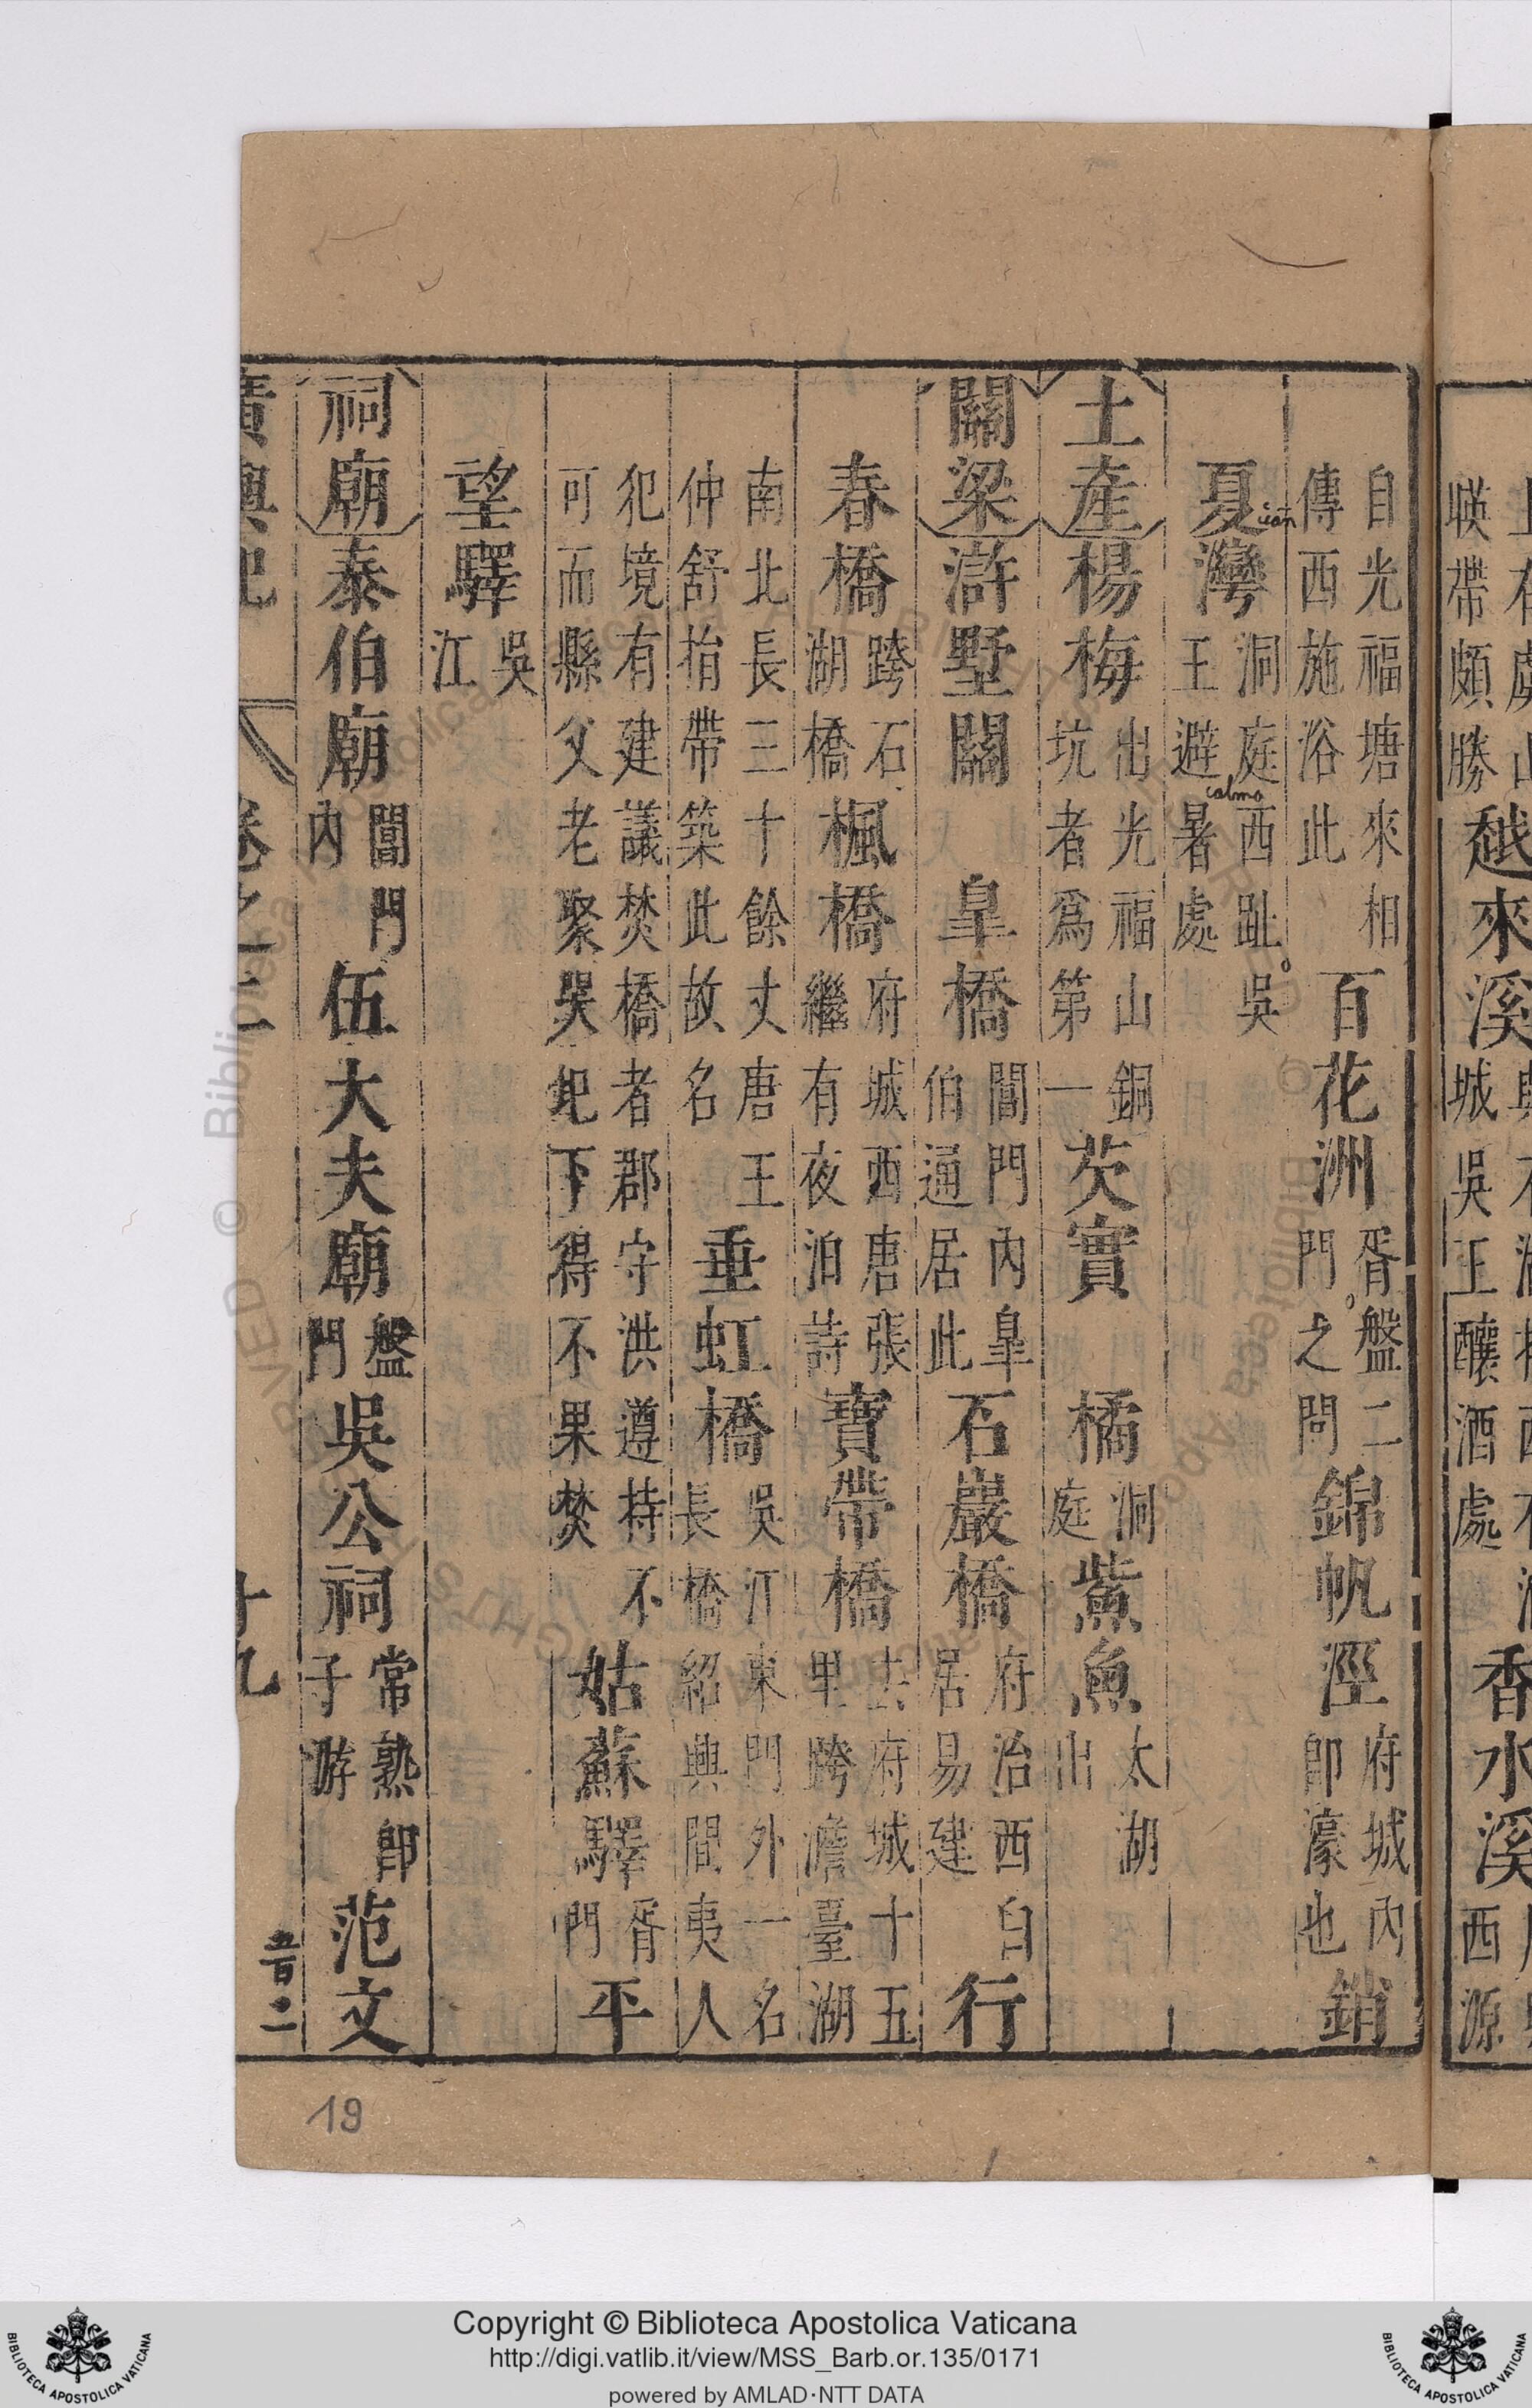 暎帶頗勝 越來溪 城吳王釀酒處 香水溪 西源
自光福塘來相傳西施浴此 百花洲 胥盤二門之問 錦帆涇 府城內即濠也 銷
夏灣 洞庭西趾吳王避暑處
calmo
土產 楊梅 出光福山銅坑者爲第一 芡實 橘 洞庭 鮆魚 太湖出
關梁 滸墅關 皐橋 閶門內皐伯通居此 石巖橋 府治西白居易建 行
春橋 跨石湖橋 楓橋 府城西唐張繼有夜泊詩 寶帶橋 去府城十五里跨澹臺湖
南北長三十餘丈唐王仲舒捐帶築此故名 垂虹橋 吳江東門外一名長橋紹興間夷人
犯境有建議焚橋者郡守洪遵持不可而縣父老聚哭圯下得不果焚 姑蘇驛 胥門 平
望驛 吳江
祠廟 泰伯廟 閶門內 伍大夫廟 盤門 吳公祠 常熟即子游 范文
廣輿記 卷之二 十九
五百二
19
Copyright © Biblioteca Apostolica Vaticana
http://digi.vatlib.it/view/MSS_Barb.or.135/0171
powered by AMLAD·NTT DATA
BIBLIOTECA APOSTOLICA VATICANA
BIBLIOTECA APOSTOLICA VATICANA